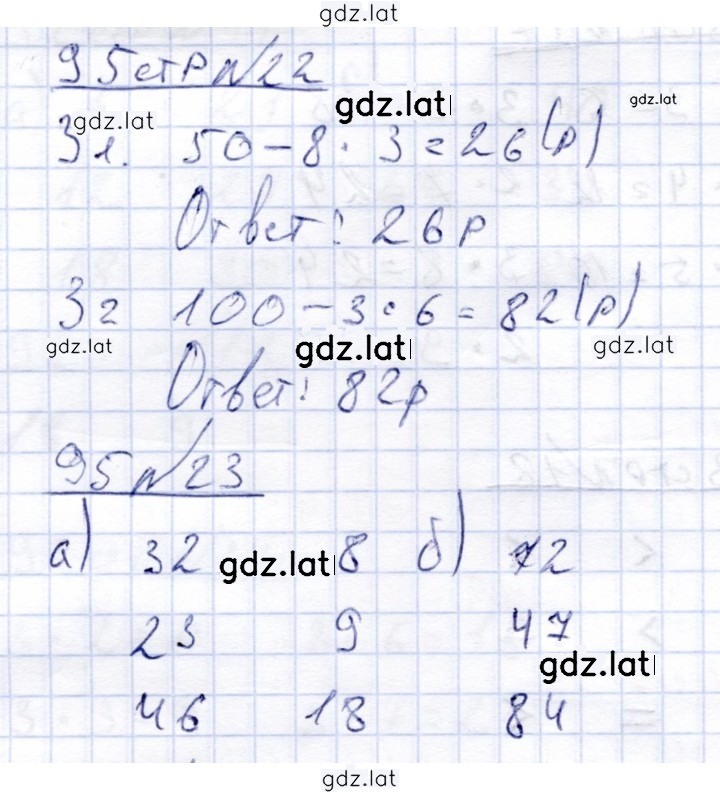 gdz.lat
95 стр №22
gdz.lat gdz.lat
gdz.lat
З1. 50 - 8 · 3 = 26 (р)
Ответ: 26 р
З2 100 - 3 · 6 = 82 (р)
gdz.lat gdz.lat gdz.lat
Ответ: 82 р
95 №23
а) 32 gdz.lat 8 б) 72
23 9 47
gdz.lat
46 18 84
gdz.lat